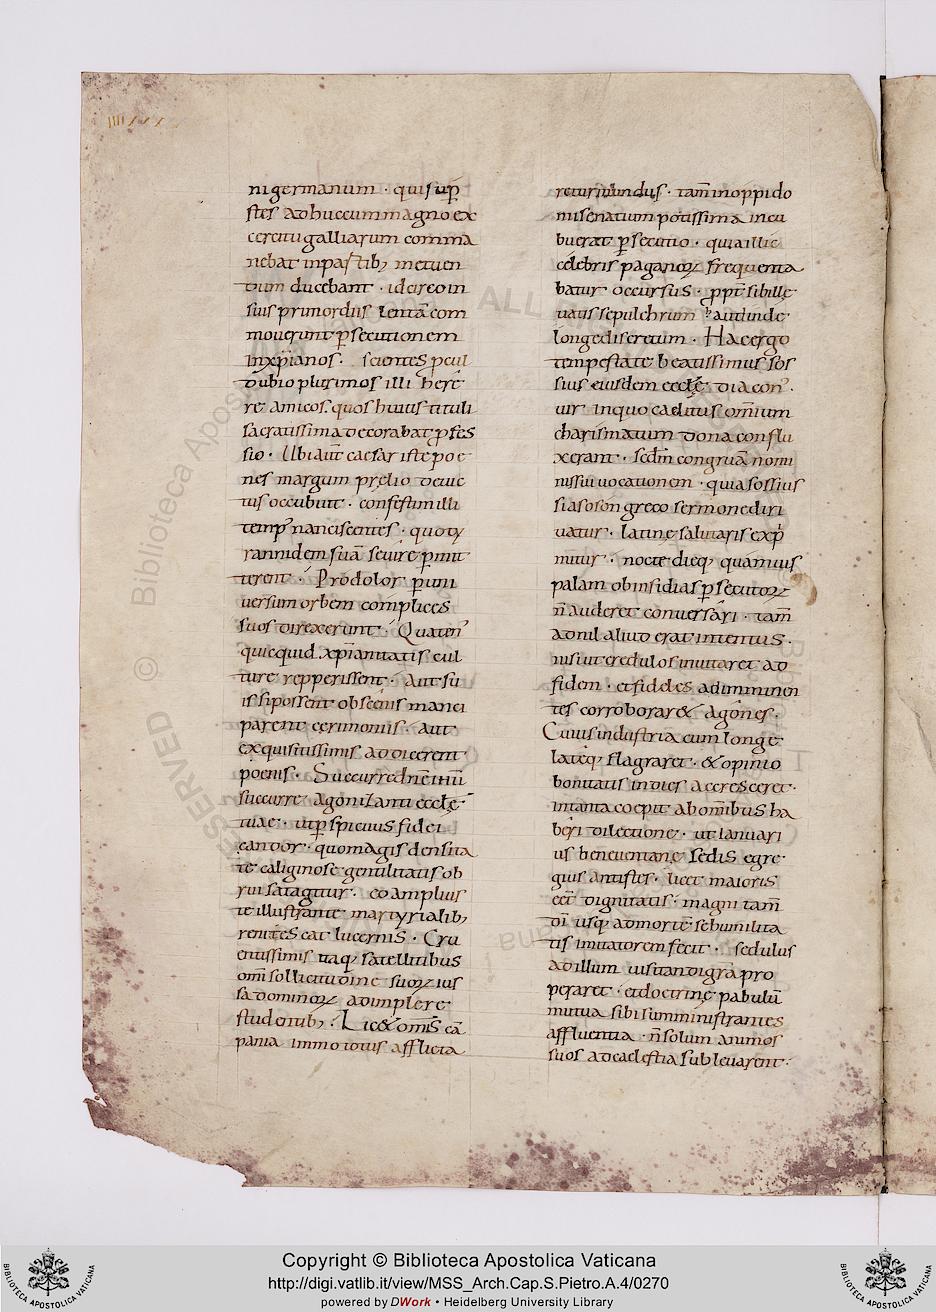 nigermanum · quisup̄
stes adhuc cum magno ex
cercitu galliarum comma
nebat inpartib; metuen
dum ducebant · idcirco in
suis primordiis lentā com
mouerunt p̱secutionem
inxp̄ianos · scientes p̱cul
dubio plurimos illi here
re amicos quos huius tituli
sacratissima decorabat ꝓfes
sio · Ubi aūt caesar iste poe
nes margum prelio deuic
tus occubuit · confestim illi
temp̄ nanciscentes · quo ty
rannidem suā seuire p̱mit
terent · Prodolor p̱uni
uersum orbem complices
suos direxerunt · Quaten̄
quicquid xp̄ianitatis cul
ture repperissent · Aut su
is si possent obscenis manci
parent cerimoniis · aut
exquisitissimis addicerent
poenis · Succurre dn̄e inū
succurre agonizanti eccl̄ę
tuae · utp̱spicuus fidei
candor · quo magis densita
te caliginose gentilitatis ob
rui satagitur · eo amplius
te illustrante martyrialib;
renitescat lucernis · Cru
entissimis itaq; satellitibus
om̄i sollicitudine suoꝝ ius
sa dominoꝝ adimplere
studentib; · Lic& om̄is cā
pania immo totus afflicta
retur mundus · tam̄ in oppido
misenatium potissima incu
buerat p̱secutio · quia illic
celebris paganoꝝ frequenta
batur occursus · ꝓpt̄ sibillę
uatis sepulchrum haut inde
longe discretum · Hac ergo
tempestate beatissimus sos
sius eiusdem eccl̄ę diacon̄ ·
uir in quo caelitus om̄ium
charismatum dona conflu
xerant · sed̄m congruā nomi
nis sui uocationem · quia sossius
siasoson greco sermone diri
uatur · latine salutaris exp̄
mitur · nocte dieq; quamuis
palam ob insidias p̱secutoꝝ
n̄ auderet conuersari · tam̄
ad nil aliud erat intentus ·
nisi ut credulos inuitaret ad
fidem · et fideles ad imminen
tes corroborar& agones ·
Cuius industria cum longe
lateq; flagraret · & opinio
bonitatis in dies accresceret ·
intanta coepit ab om̄ibus ha
beri dilectione · ut ianuari
us beneuentanę sedis egre
gius antistes · licet maioris
eēt dignitatis · magni tam̄
dī usq; ad mortē se humilita
tis imitatorem fecit · sedulus
ad illum uisitandi gr̄a pro
peraret · et doctrinę pabulū
mutua sibi sumministrantes
affluentia · n̄ solum animos
suos ad caelestia subleuarent ·
Copyright © Biblioteca Apostolica Vaticana
http://digi.vatlib.it/view/MSS_Arch.Cap.S.Pietro.A.4/0270
powered by DWork • Heidelberg University Library